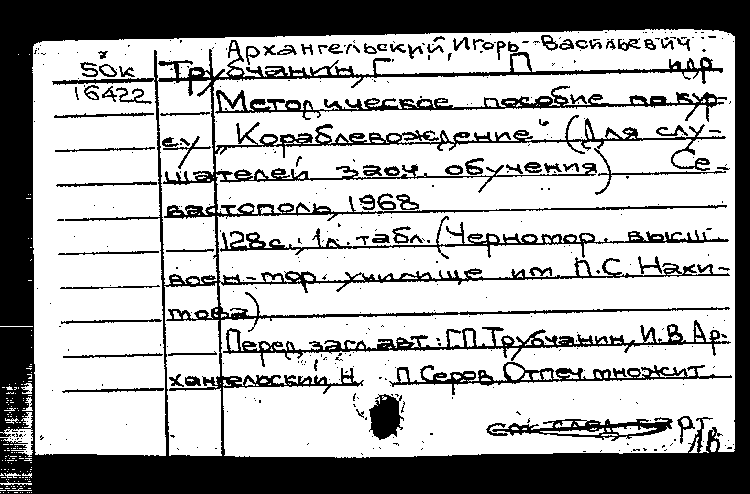 Архангельский, Игорь Васильевич.
50к Трубчанин, Г П и др
16422 Методическое пособие по кур-
су „Кораблевождение“ (Для слу-
шателей заоч. обучения) Се-
вастополь, 1968
128с., 1л. табл. (Черномор. высш
воен-мор. училище им П.С. Нахи-
мова)
Перед загл. авт.: Г.П. Трубчанин, И.В Ар-
хангельский, Н. П. Серов Отпеч. множит.
см след карт